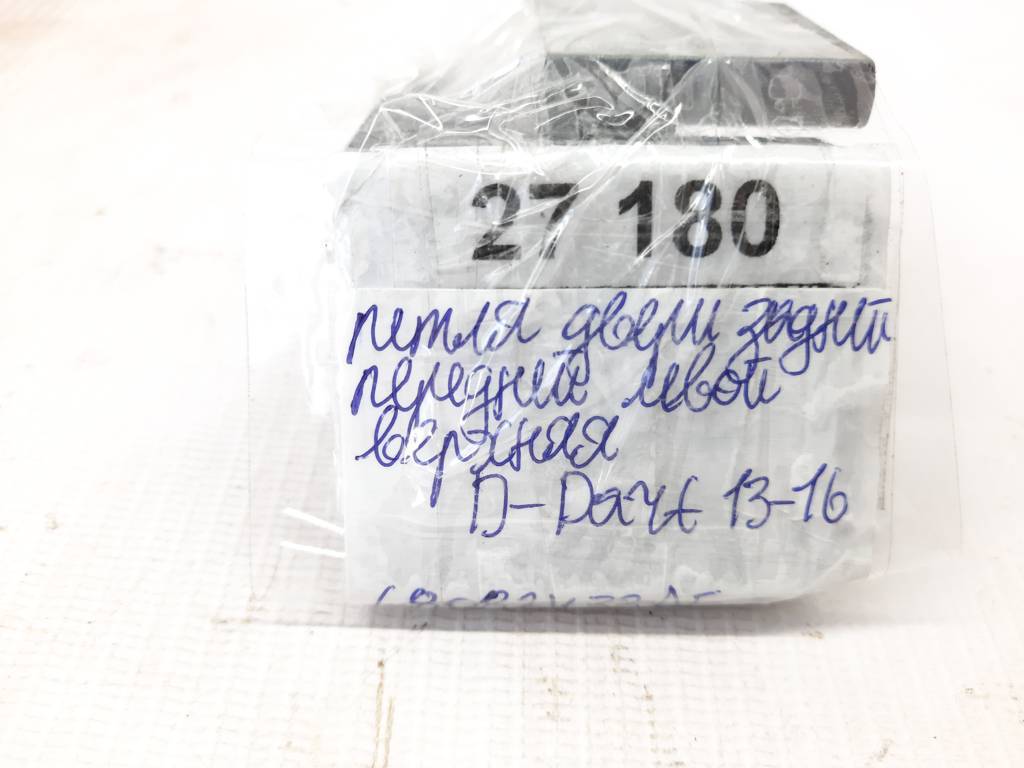 27 180
петля двери задний
передний левой
верхняя
D-Dart 13-16